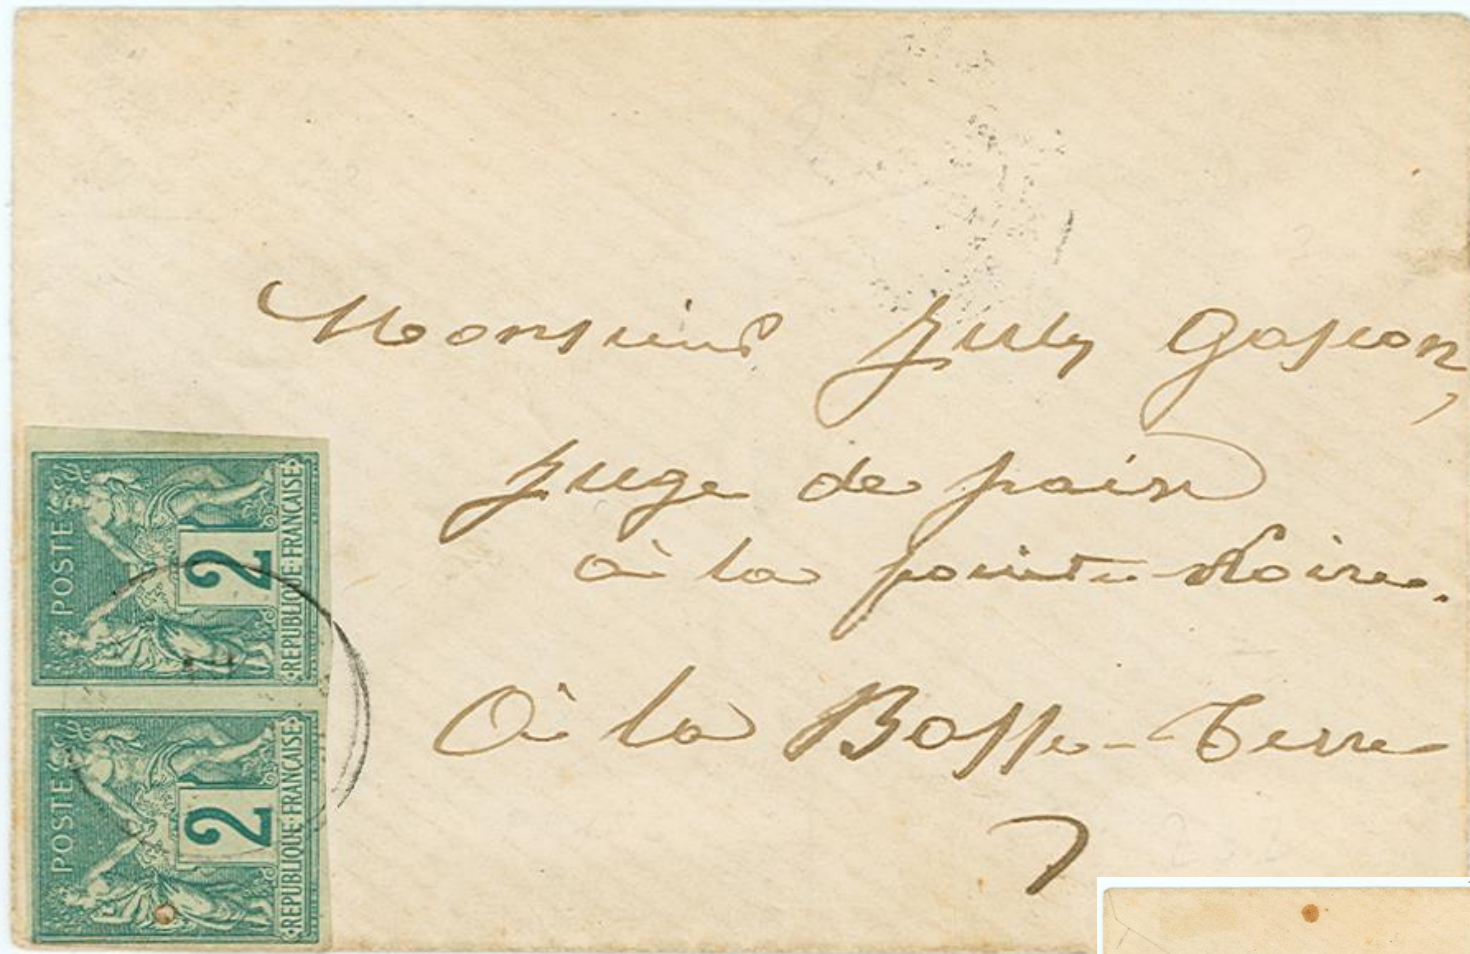 Monsieur July Gascon,
juge de paix
à la pointe-Noire.
à la Basse-Terre
POSTE
2
REPUBLIQUE FRANCAISE
POSTE
2
REPUBLIQUE FRANCAISE